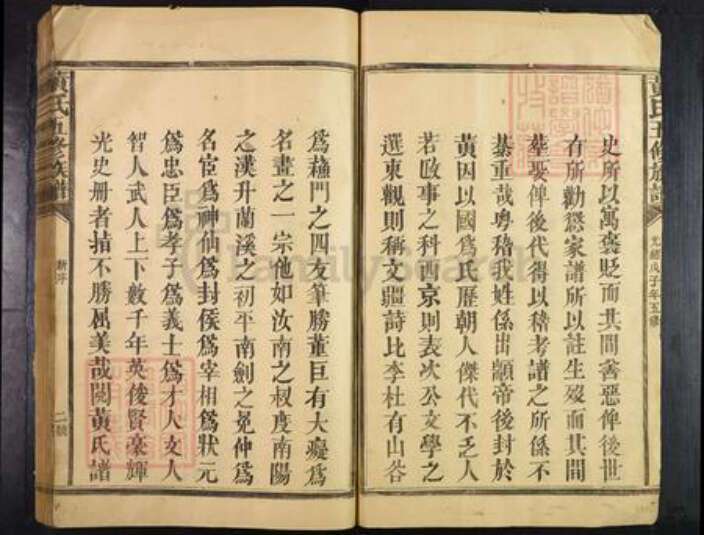 黃氏五修族譜
光緒戊子年五修
史所以寓褒貶而其間善惡俾後世
有所勸懲家譜所以註生歿而其間
塟娶俾後代得以稽考譜之所係不
綦重哉粵稽我姓係出顓帝後封於
黃因以國爲氏歷朝人傑代不乏人
若政事之科西京則表次公文學之
選東觀則稱文疆詩比李杜有山谷
爲蘓門之四友筆勝董巨有大癡爲
名畫之一宗他如汝南之叔度南陽
之漢升蘭溪之初平南劍之冕仲爲
名宦爲神仙爲封侯爲宰相爲狀元
爲忠臣爲孝子爲義士爲才人文人
智人武人上下數千年英俊賢豪輝
光史册者指不勝屈美哉閱黃氏譜
黃氏五修族譜
新序
二
FamilySearch